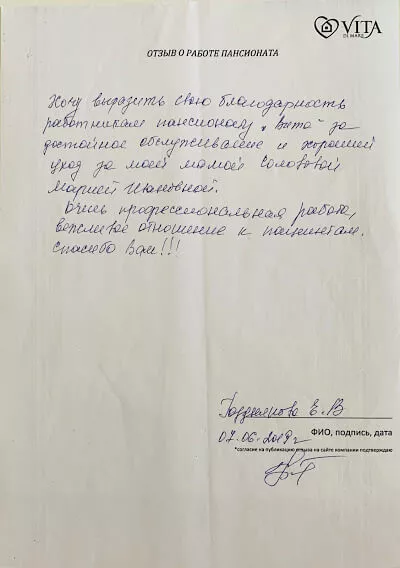 VITA
IN MARE
ОТЗЫВ О РАБОТЕ ПАНСИОНАТА
Хочу выразить свою благодарность
работникам пансионату "Вита" за
достойное обслуживание и хороший
уход за моей мамой Соловой
Марией Ивановной.
Очень профессиональная работа,
вежливое отношение к пациентам.
Спасибо Вам!!!
Е.В
07.06.2019г
ФИО, подпись, дата
*согласие на публикацию отзыва на сайте компании подтверждаю